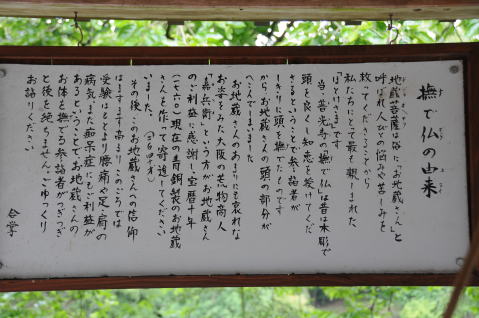 撫で仏の由来
地蔵菩薩は俗に、「お地蔵さん」と
呼ばれ人びとの悩みや苦しみを
救ってくださることから
私たちにとって最も親しまれた
「ほとけさま」です
当、善光寺の「撫で仏」は昔は木彫で
頭を良くし知恵を授けてくだ
さるということで、参詣者が
しきりに頭を撫でたのです
から、お地蔵さんの頭の部分が
へこんでしまいました
お地蔵さんのあまりにも哀れな
お姿をみた大阪の荒物商人
嘉兵衛という方がお地蔵さん
のご利益に感謝し、宝暦十年
(一七六〇)現在の青銅製のお地蔵
さんを作って寄進してください
いました。
その後、このお地蔵さんへの信仰
はますます高まりこのごろでは
受験はもとより腰痛や足・肩の
病気、また痴呆症にもご利益が
あるということでお地蔵さんの
お体を撫でる参詣者がつぎつぎ
と後を絶ちません。ごゆっくり
お詣りください
合掌